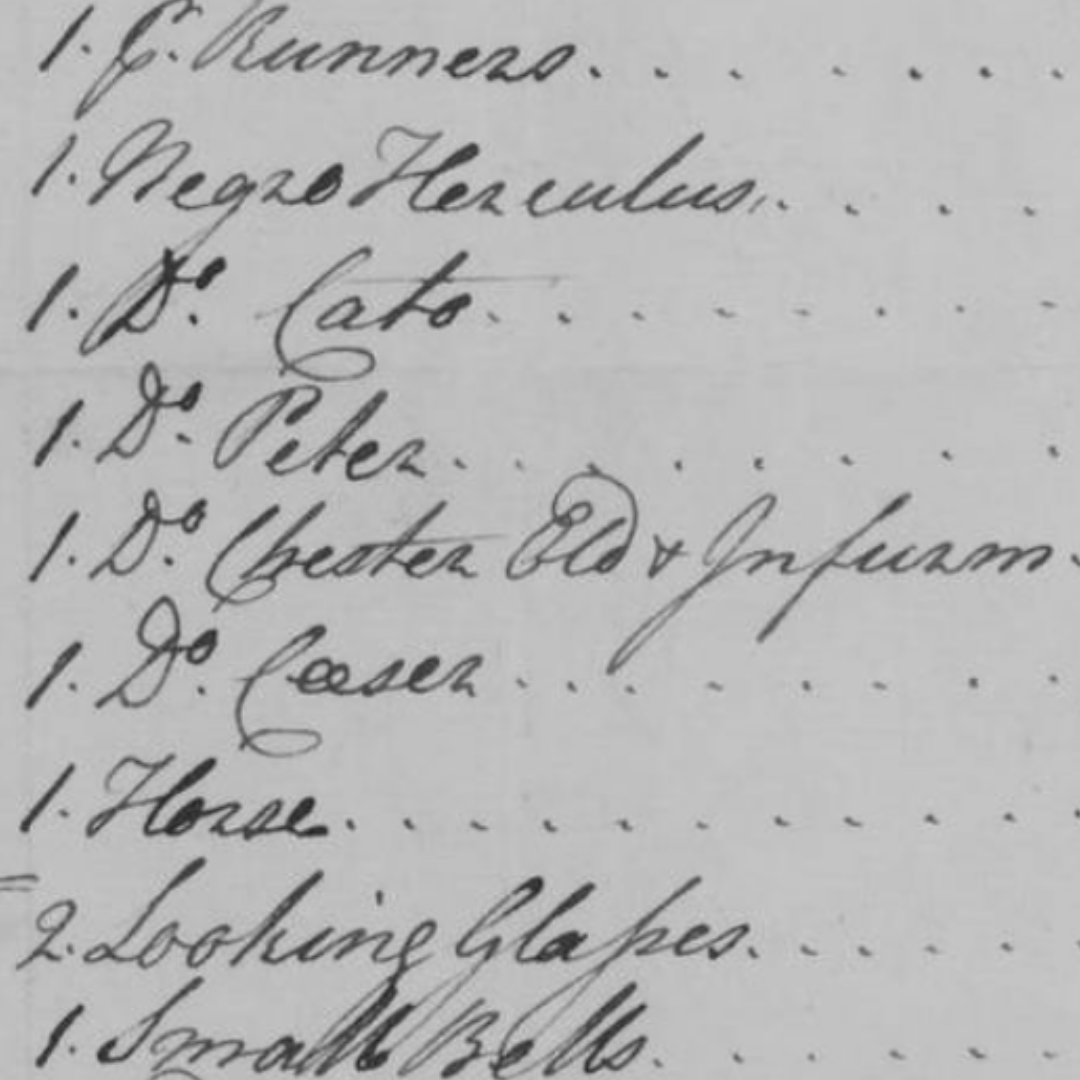 1. Pr. Runners.
1. Negro Herculus.
1. Do. Cato.
1. Do. Peter.
1. Do. Chester Old & Infurm.
1. Do. Ceaser
1. Horse.
2. Looking Glasses.
1. Small Bells.